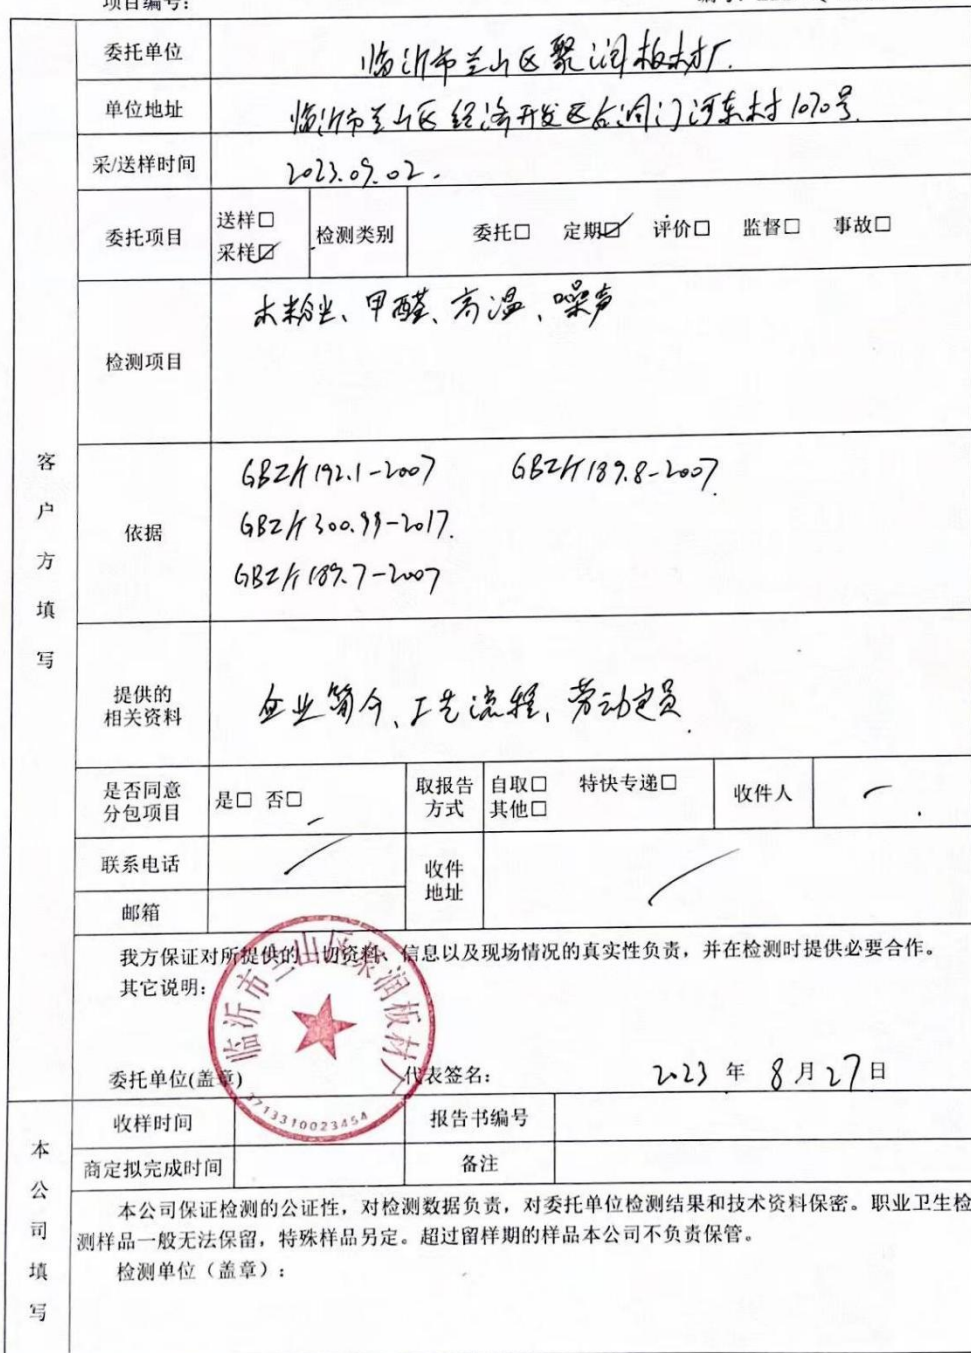 项目编号：
委托单位 临沂市兰山区聚润板材厂.
单位地址 临沂市兰山区经济开发区右涧门河东村1070号
采/送样时间 2023.09.02.
委托项目 送样□ 检测类别 委托□ 定期☑ 评价□ 监督□ 事故□
采样☑
检测项目 木粉尘、甲醛、高温、噪声
客户方填写
依据 GBZ/T192.1-2007 GBZ/T189.8-2007.
GBZ/T300.99-2017.
GBZ/T189.7-2007
提供的相关资料 企业简介、工艺流程、劳动定员.
是否同意分包项目 是□ 否□ 取报告方式 自取□ 特快专递□ 收件人
其他□
联系电话 收件地址
邮箱
我方保证对所提供的一切资料、信息以及现场情况的真实性负责，并在检测时提供必要合作。
其它说明：
临沂市兰山区聚润板材厂
3713310023454
委托单位(盖章) 代表签名： 2023 年 8 月 27 日
本公司填写
收样时间 报告书编号
商定拟完成时间 备注
本公司保证检测的公证性，对检测数据负责，对委托单位检测结果和技术资料保密。职业卫生检
测样品一般无法保留，特殊样品另定。超过留样期的样品本公司不负责保管。
检测单位（盖章）：